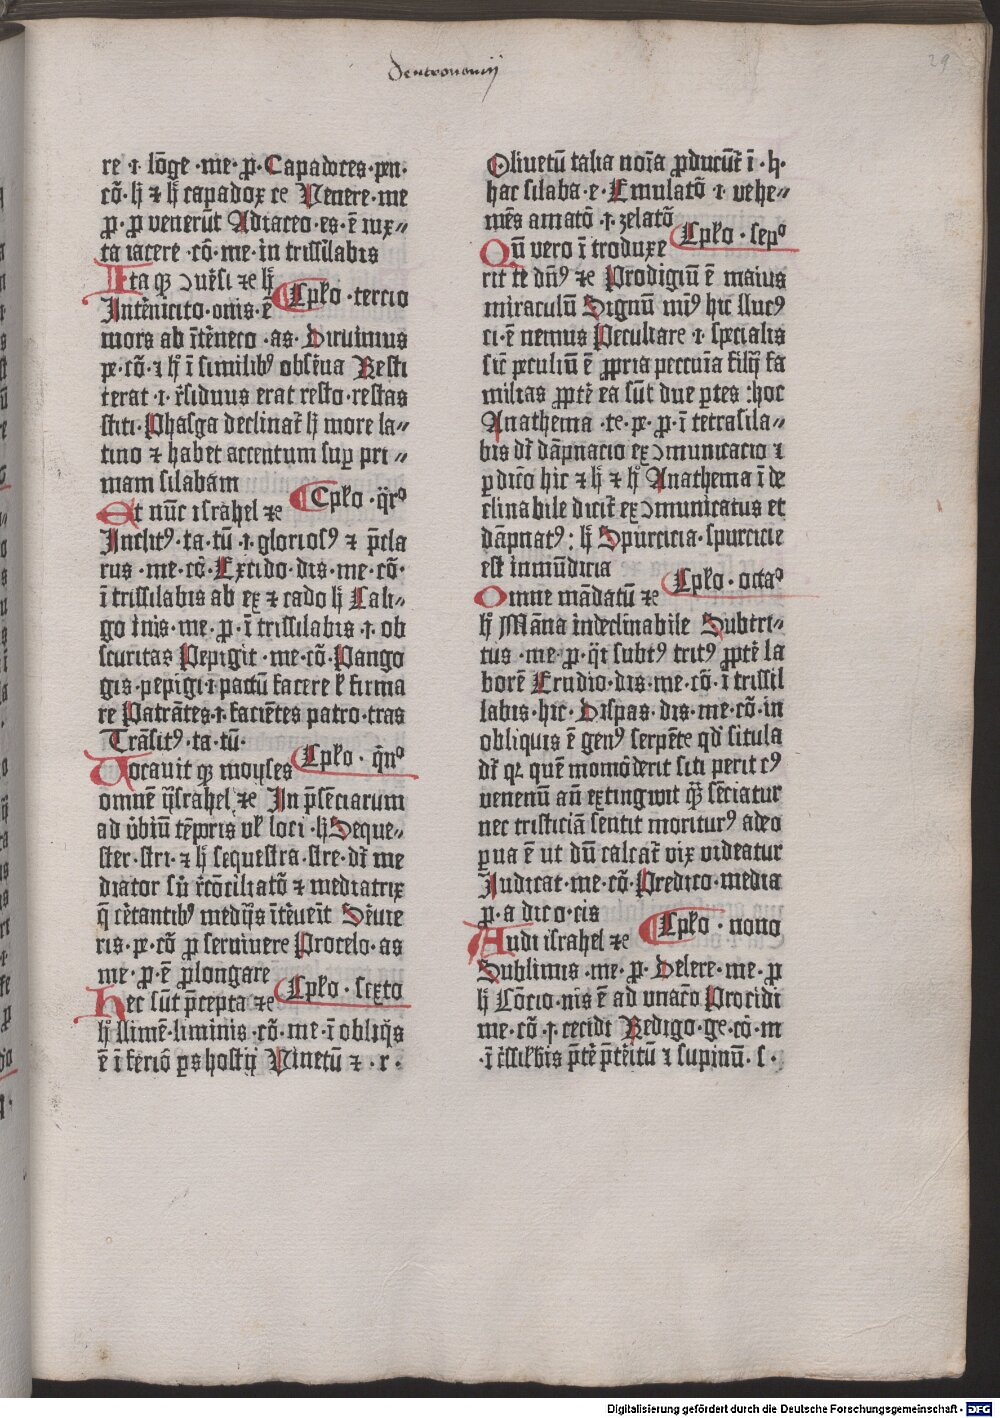 Deutronomij
29
re ·i· lōge ·me· p̱· Capadoces· pen·
cō· ḣ ⁊ ḣ capadox ⁊c Venere· me
p̱· p̱ venerūt Adiaceo· es· ē iux⸗
ta iacere ·cō· me· in trissilabis
Ita qꝫ ↄuersi ⁊c ḣ
Cpło · tercio
Inter̄nicito· onis· ē
mors ab īterneco ·as· Diruimus
pe· cō· ⁊ ḣ ī similibꝰ obser̄ua Resti
terat ·i· r̄siduus erat resto· restas
stiti· Phasga declinat̄ ḣ more la⸗
tino ⁊ habet accentum sup̱ pri⸗
mam silabam
Cpło · q̄rᵒ
Et nūc israhel ⁊c
Inclitꝰ· ta· tū· ·i· gloriosꝰ ⁊ p̄cla
rus ·me· cō· Excido· dis· me· cō·
ī trissilabis ab ex ⁊ cado ḣ Cali⸗
go inis· me· p̱· ī trissilabis ·i· ob
scuritas Pepigit ·me· cō· Pango
gis· pepigi ·i· pactū facere ł firma
re Patrātes ·i· faciētes patro· tras
Trāsitꝰ· ta· tū·
Cpło · q̄nᵒ
Vocauit qꝫ moyses
omnē ysrahel ⁊c In p̄senciarum
ad aduerbiū tēporis vł loci · ḣ Seque⸗
ster· stri· ⁊ ḣ sequestra· stre· dr̄ me
diator siue r̄cōciliatō ⁊ mediatrix
q̄ cer̄tantibꝰ medijs īteruēit Serui e
ris· pe· cō p̱ seruiuere Procelo· as
me· p̱· ē p̱longare
Cpło · sexto
Hec sūt p̄cepta ⁊c
ḣ limē· liminis· cō· me· ī obliqis
ē ī ferio ps hostij Vinetū ⁊ · r ·
Oliuetū talia noīa p̱ducūt̄ ī · ḣ·
hac silaba· e· Emulatō ·i· vehe⸗
mēs amatō ·i· zelatō
Cpło · sepᵒ
Qū vero ī troduxe
rit te dn̄ꝰ ⁊c Prodigiū ē maius
miraculū Signū minꝰ hic llucꝰ
ci· ē nemus Peculiare ·i· specialis
sic̄ peculiū ē p̱pria peccunia filij fa
milias p̱pter̄ ea sūt due p̱tes :hoc
Anathema ·te· pe· p̱· ī tetrasila⸗
bis dr̄ dāpnacio exↄmunicacio ⁊
p̱ dicto hic ⁊ ḣ ⁊ ḣ Anathema ī de
clinabile dicit̄ exↄmunicatus et
dāpnatꝰ: ḣ Spurcicia· spurcicie
est inmūdicia
Cpło · octaᵒ
Omne mādatū ⁊c
ḣ Māna indeclinabile Subtri⸗
tus ·me· p̱· q̄si subtꝰ tritꝰ p̱pter̄ la
borē Erudio· dis· me· cō· ī trissil
labis· hic· Dispas· dis· me· cō· in
obliquis ē genꝰ serpēte qd̄ situla
dr̄ qꝛ quē momōderit siti perit cꝰ
venenū an̄ extingwit qꝫ sēciatur
nec tristiciā sentit moriturꝰ adeo
parua ē ut dū calcat̄ vix videatur
Iudicat· me· cō· Predico· media
p̱· a dico· cis
Cpło · nono
Audi israhel ⁊c
Sublimis ·me· p̱· Delere· me· p̱
ḣ Cōcio· nis ē aduocatio Procidi
me· cō ·i· cecidi Redigo· ge· cō· m
· ī trissilabis p̱ter p̱teritū ⁊ supinū· s ·
Digitalisierung gefördert durch die Deutsche Forschungsgemeinschaft - DFG